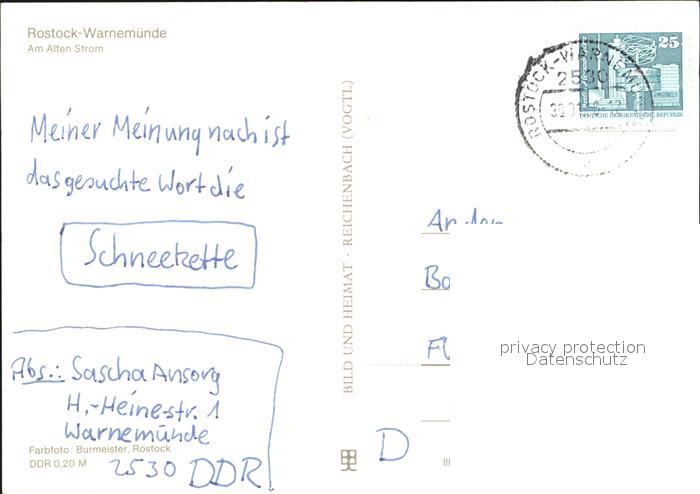 Rostock-Warnemünde
Am Alten Strom
25
ROSTOCK-WARNEMÜ
2530
DEUTSCHE DEMOKRATISCHE REPUBLIK
Meiner Meinung nach ist
das gesuchte Wort die
Schneekette
BILD UND HEIMAT · REICHENBACH (VOGTL)
An den
Bo
privacy protection
Datenschutz
Abs.: Sascha Ansorg
H.-Heine-str. 1
Warnemünde
2530 DDR
Farbfoto: Burmeister, Rostock
DDR 0,20 M
D
III